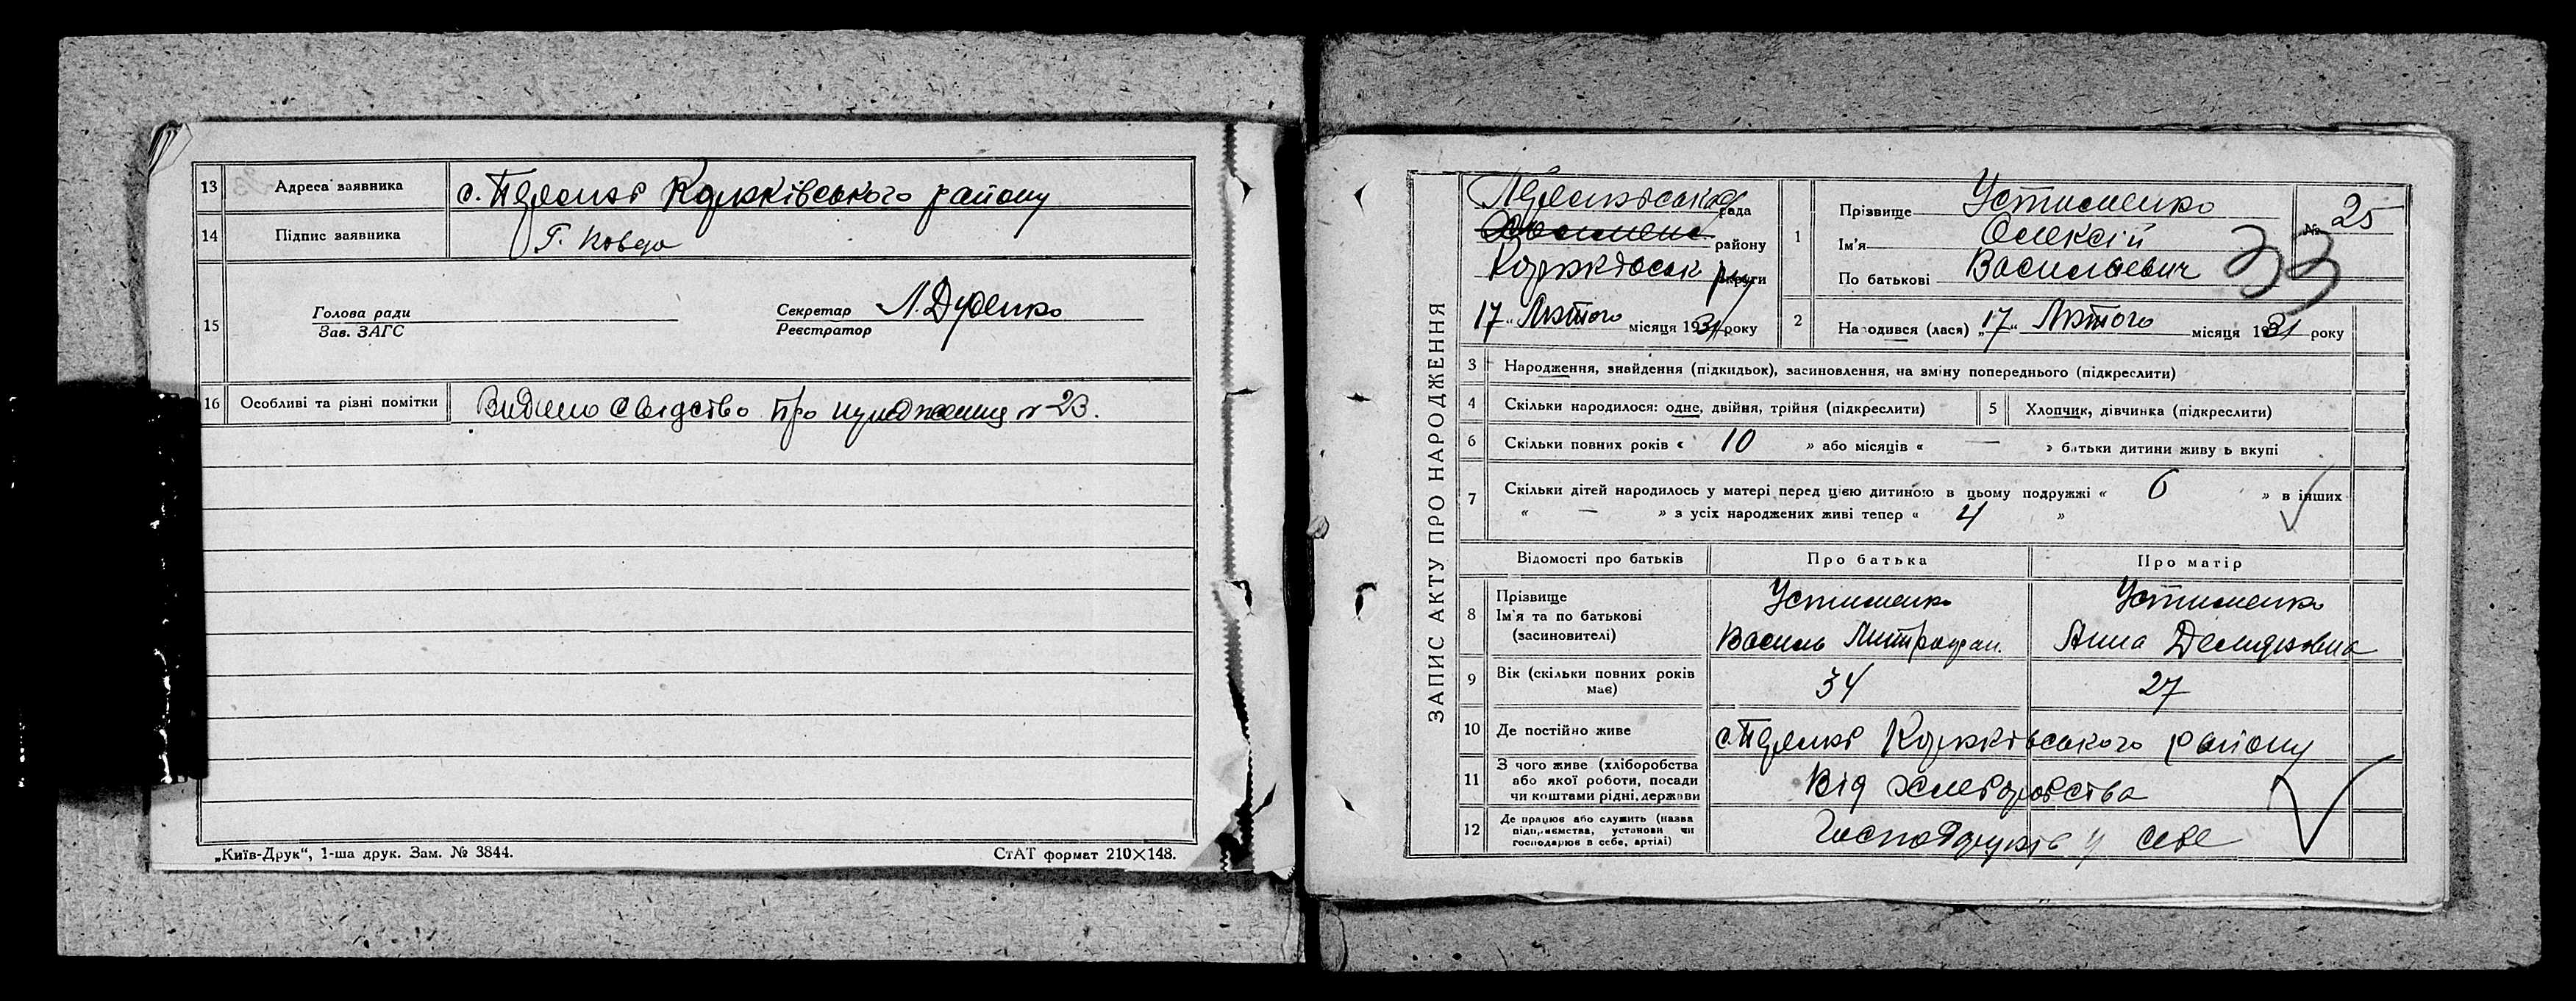 13 Адреса заявника с. Підлипкі району
14 Підпис заявника Г. Ковда
15 Голова ради
Зав. ЗАГС
Секретар
Реєстратор Л. Дуденко
16 Особливі та різні помітки Видано свідство про № 23.
„Київ-Друк“, 1-ша друк. Зам. № 3844.
СтАТ формат 210×148.
ЗАПИС АКТУ ПРО НАРОДЖЕННЯ
рада
району
округи
„17“ Лютого місяця 1931 року
1 Прізвище Устименко
Ім'я Олексій
По батькові Васильевич
№ 25
33
2 Народився (лася) „17“ Лютого місяця 1931 року
3 Народження, знайдення (підкидьок), засиновлення, на зміну попереднього (підкреслити)
4 Скільки народилося: одне, двійня, трійня (підкреслити)
5 Хлопчик, дівчинка (підкреслити)
6 Скільки повних років « 10 » або місяців « — » батьки дитини живуть вкупі
7 Скільки дітей народилось у матері перед цією дитиною в цьому подружжі « 6 » в інших
« — » з усіх народжених живі тепер « 4 »
Відомості про батьків Про батька Про матір
8 Прізвище Устименко Устименко
Ім'я та по батькові
(засновителі) Василь Митрофан. Анна Демидовна
9 Вік (скільки повних років
має) 34 27
10 Де постійно живе району
11 З чого живе (хліборобства
або якої роботи, посади
чи коштами рідні, держави Від хлеборобства
12 Де працює або служить (назва
підприємства, установи чи
господарює в себе, артілі) у себе